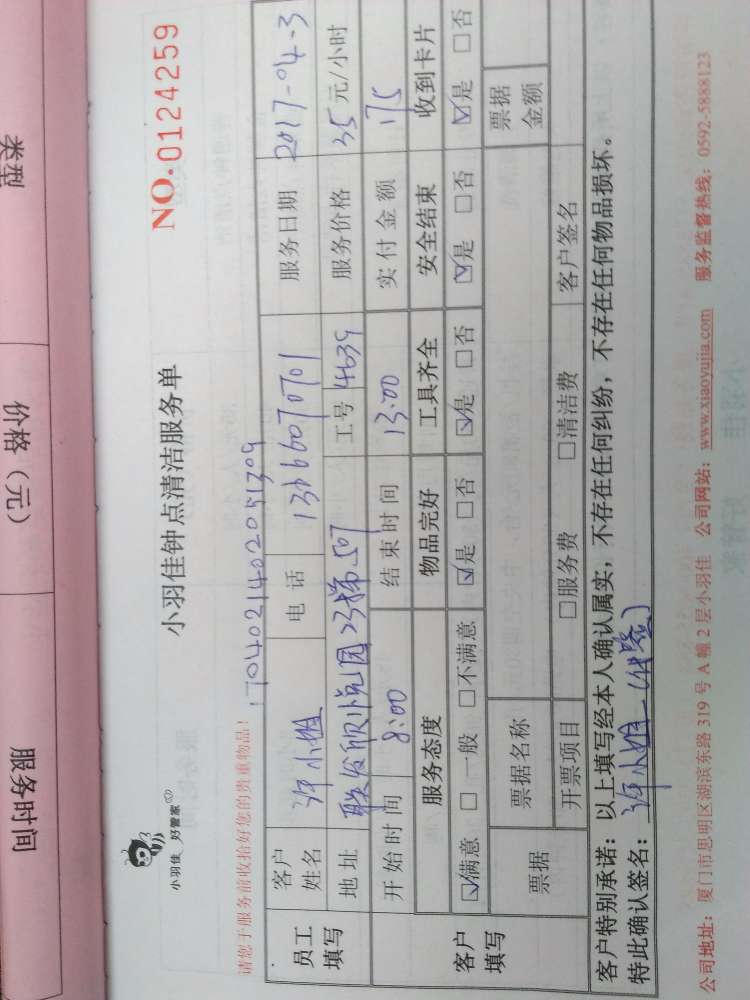 类型
价格（元）
服务时间
小羽佳 好管家
小羽佳钟点清洁服务单
NO.0124259
请您于服务前收拾好您的贵重物品！
1704021402051309
员工填写
客户姓名 许小姐 电话 13666070701 服务日期 2017-04-3
地址 联发欣悦园23梯507 工号 4639 服务价格 35元/小时
客户填写
开始时间 8:00 结束时间 13:00 实付金额 175
服务态度 物品完好 工具齐全 安全结束 收到卡片
☑满意 □一般 □不满意 ☑是 □否 ☑是 □否 ☑是 □否 ☑是 □否
票据 票据名称 票据金额
开票项目 □服务费 □清洁费 客户签名
客户特别承诺：以上填写经本人确认属实，不存在任何纠纷，不存在任何物品损坏。
特此确认签名：许小姐（代签）
公司地址：厦门市思明区湖滨东路319号A幢2层小羽佳 公司网站：www.xiaoyujia.com 服务监督热线：0592-5888123